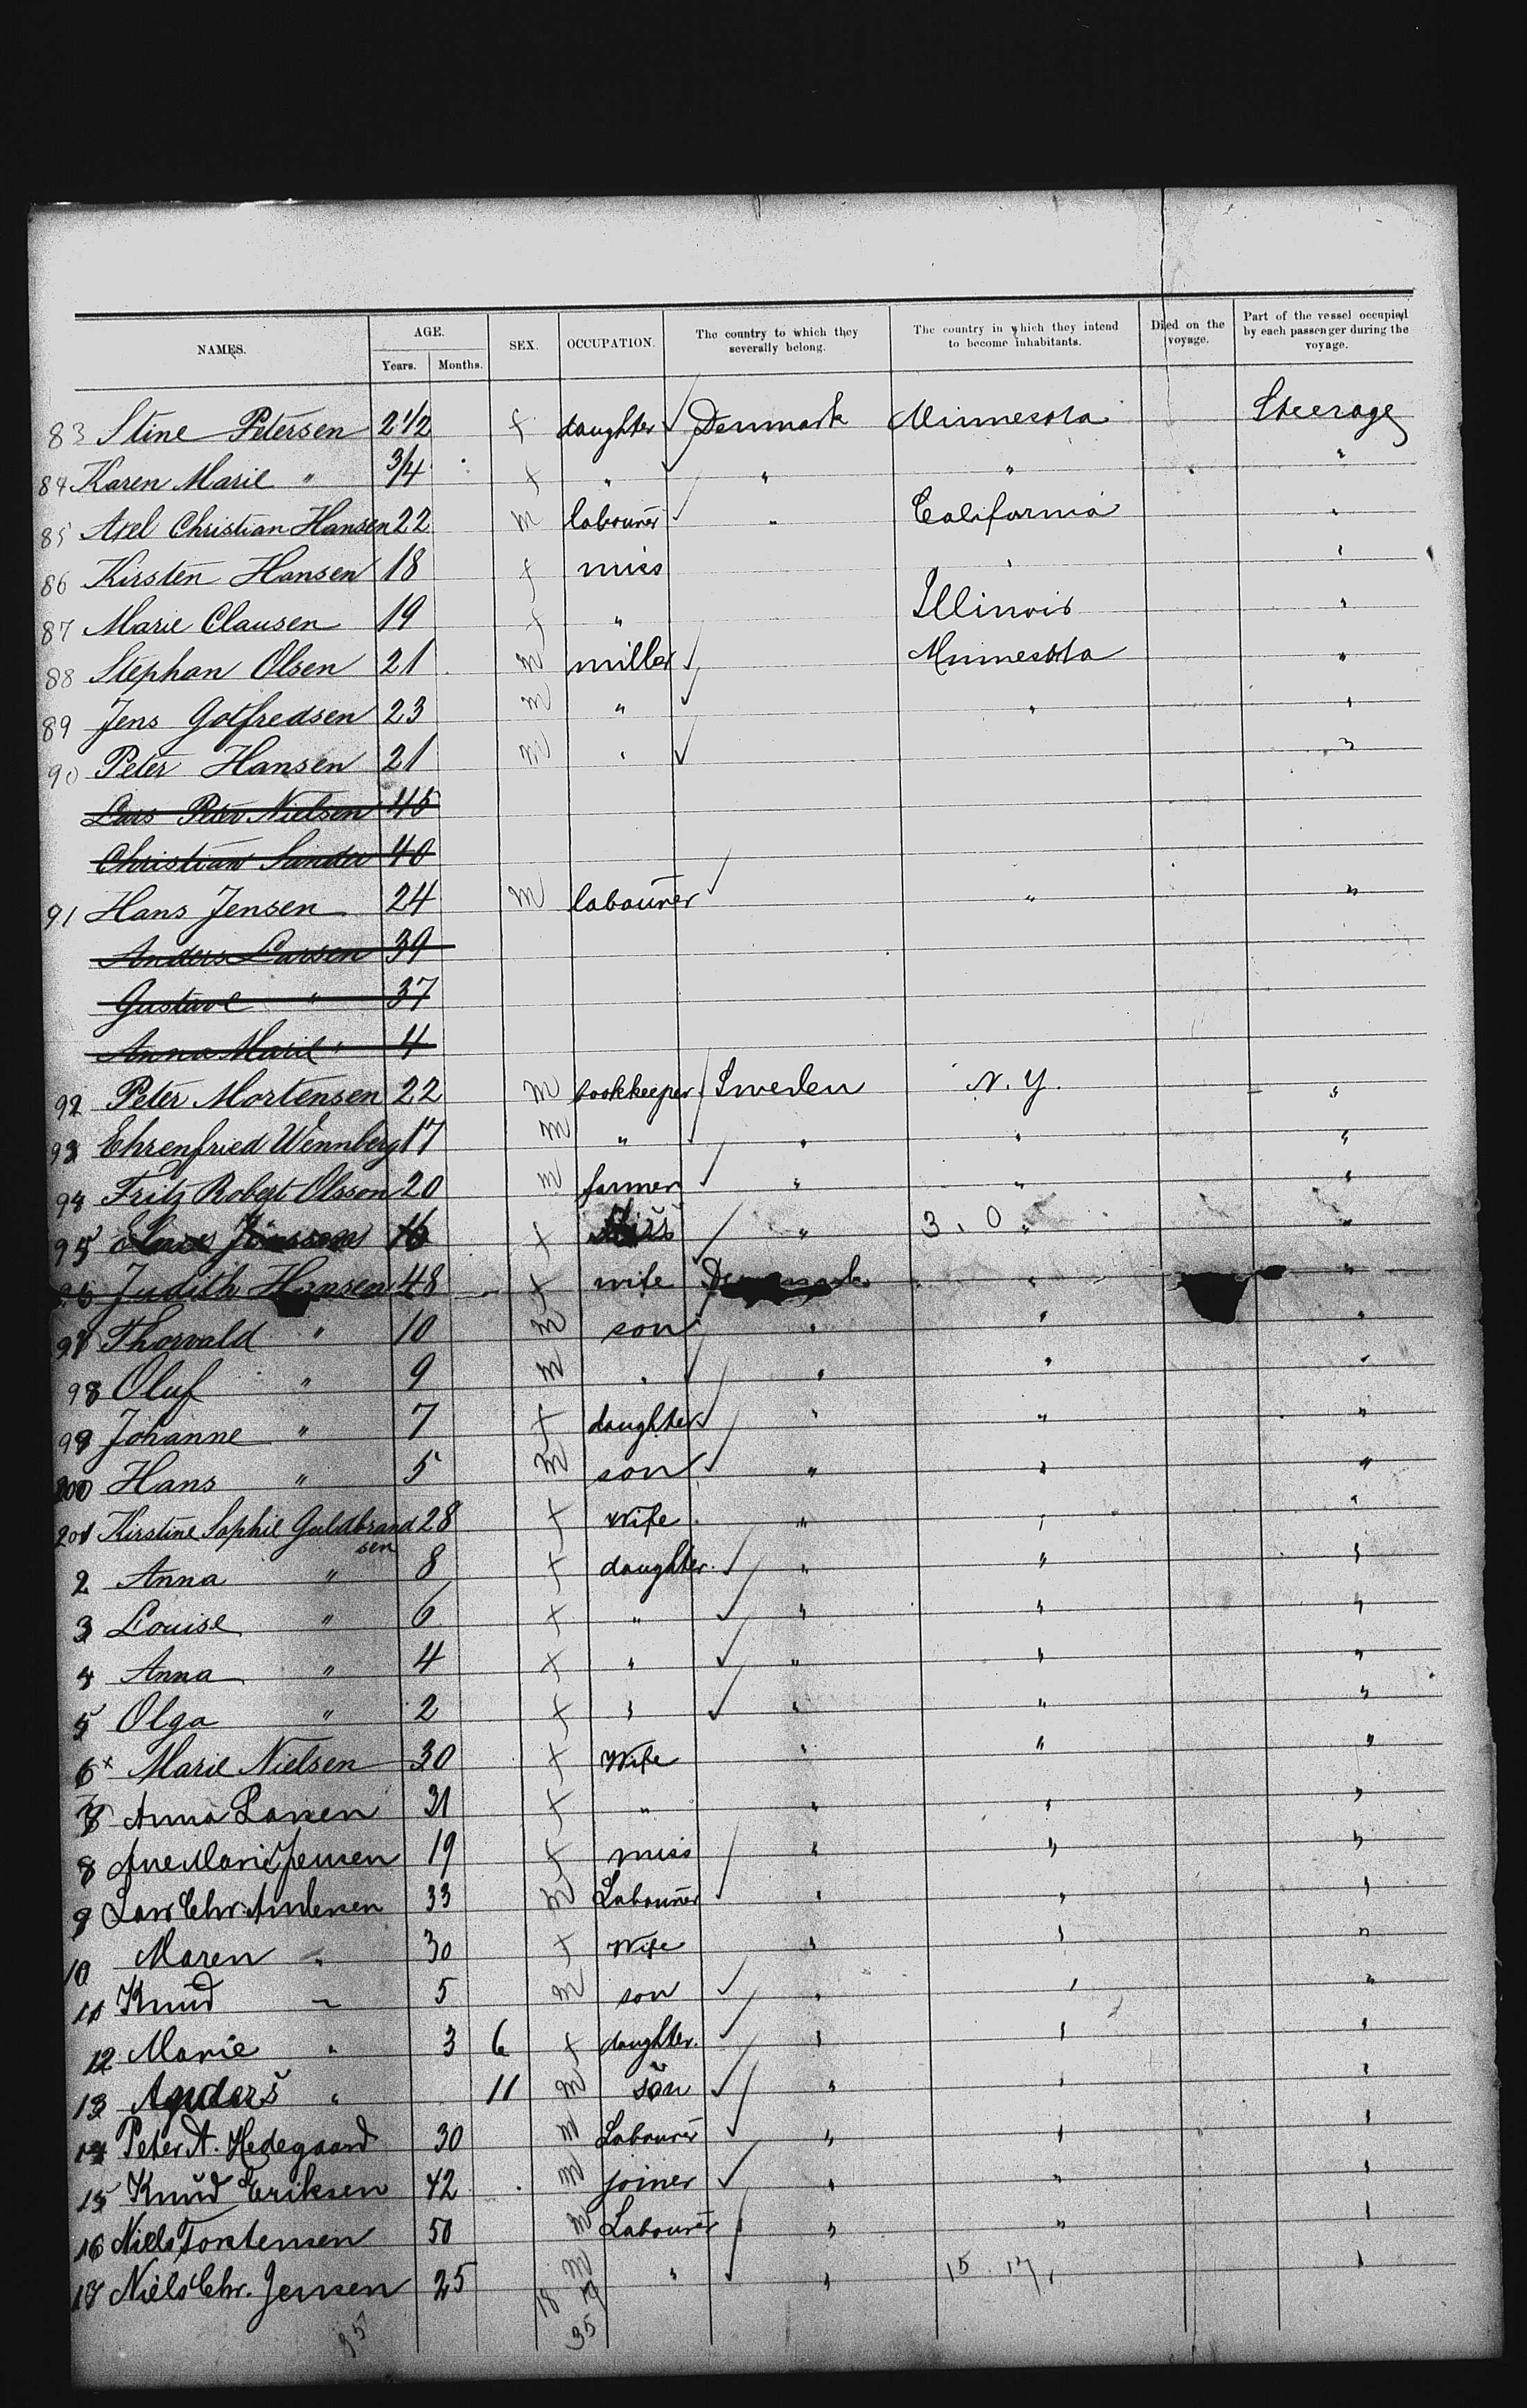 NAMES. AGE. SEX. OCCUPATION. The country to which they severally belong. The country in which they intend to become inhabitants. Died on the voyage. Part of the vessel occupied by each passenger during the voyage.
Years. Months.
83 Stine Petersen 2 1/2 f daughter Denmark Minnesota Steerage
84 Karen Marie " 3/4 f " " " "
85 Axel Christian Hansen 22 m labourer " California "
86 Kirsten Hansen 18 f miss " "
87 Marie Clausen 19 f " Illinois "
88 Stephan Olsen 21 m miller Minnesota "
89 Jens Gotfredsen 23 m " " "
90 Peter Hansen 21 m " "
Lars Peter Nielsen 45
Christian Sander 40
91 Hans Jensen 24 m labourer " "
Anders Larsen 39
Gustave " 37
Anna Marie " 4
92 Peter Mortensen 22 m bookkeeper Sweden N.Y. "
93 Ehrenfried Wennberg 17 m " " " "
94 Fritz Robert Olsson 20 m farmer " " "
95 Jönsson 16 f Miss " 3.0 " "
96 Judith Hansen 48 f wife Denmark " "
97 Thorvald " 10 m son " " "
98 Oluf " 9 m " " " "
99 Johanne " 7 f daughter " " "
200 Hans " 5 m son " " "
201 Kirstine Sophie Guldbrandsen 28 f wife " " "
2 Anna " 8 f daughter " " "
3 Louise " 6 f " " " "
4 Anna " 4 f " " " "
5 Olga " 2 f " " " "
6 x Marie Nielsen 30 f Wife " " "
7 Anna Larsen 31 f " " " "
8 Ane Marie Jensen 19 f miss " " "
9 Lars Chr. Andersen 33 m Labourer " " "
10 Maren " 30 f Wife " " "
11 Knud " 5 m son " " "
12 Marie " 3 6 f daughter. " " "
13 Anders " 11 m son " " "
14 Peter A. Hedegaard 30 m Labourer " " "
15 Knud Eriksen 42 m joiner " " "
16 Niels Torstensen 50 m Labourer " " "
17 Niels Chr. Jensen 25 m " " 15. 17, "
35 18 35